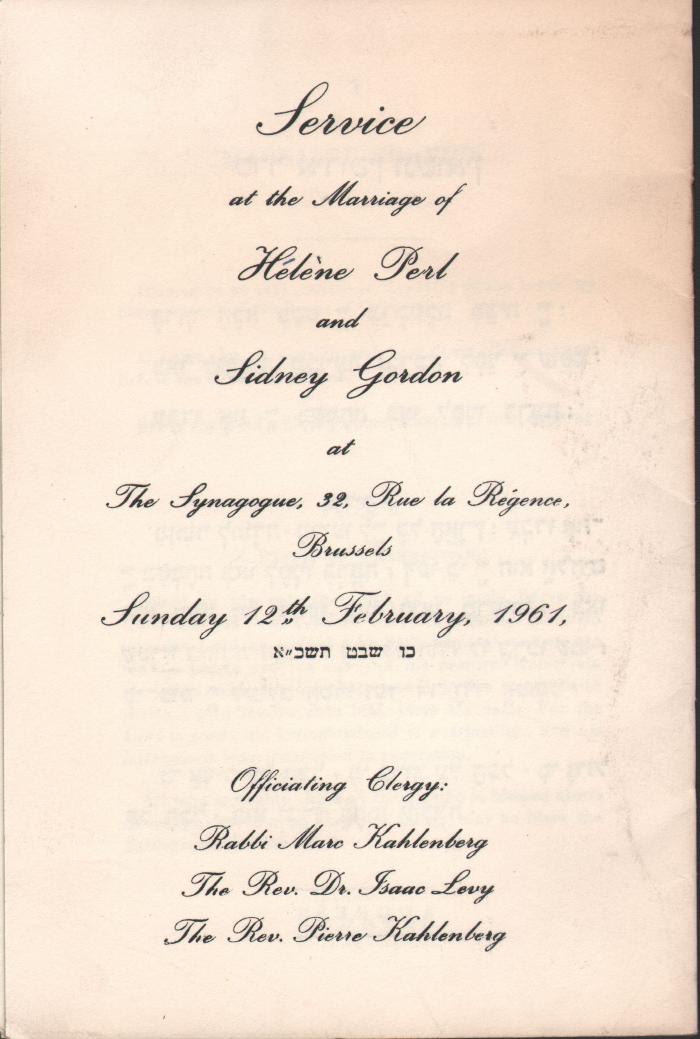 Service
at the Marriage of
Hélène Perl
and
Sidney Gordon
at
The Synagogue, 32, Rue la Régence,
Brussels
Sunday 12th February, 1961,
כו שבט תשכ״א
Officiating Clergy:
Rabbi Marc Kahlenberg
The Rev. Dr. Isaac Levy
The Rev. Pierre Kahlenberg